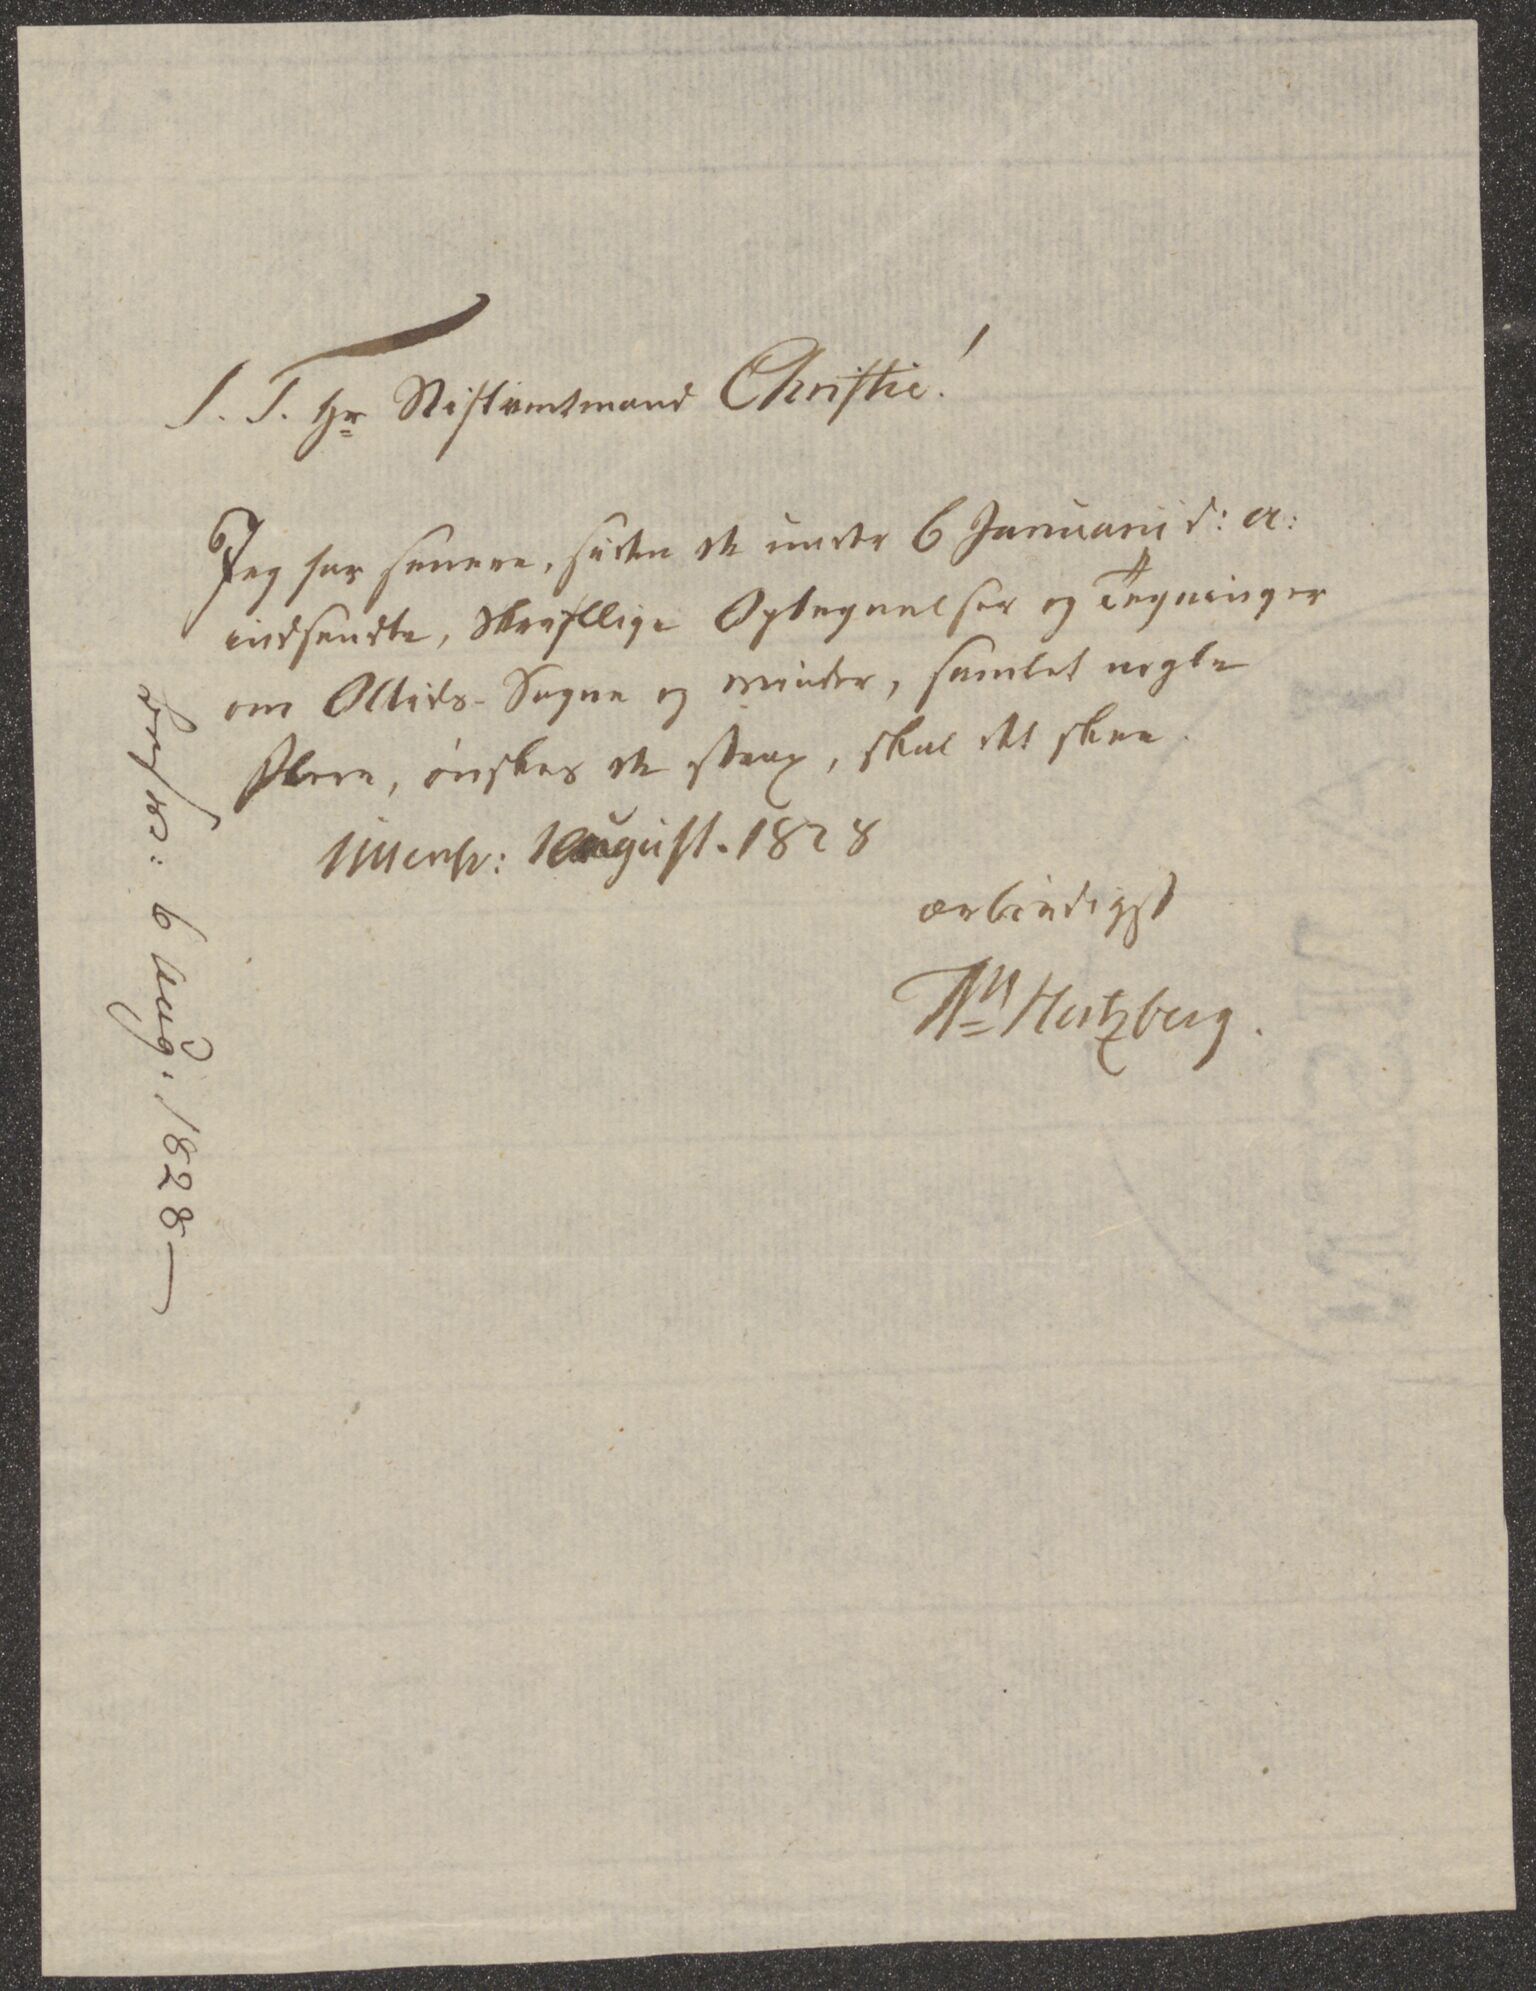 S. T. Hr Stiftamtmand Christie!
Jeg har senere, siden de under 6 Januarii d: a:
indsendte, skriftlige Optegnelser og Tegninger
om Oltids-Sagne og minder, samlet nogle
flere, ønskes de strax, skal det skee.
Ullensv: 1 August. 1828
ærbødigst
Ns Hertzberg.
besv: 6 Aug. 1828 —